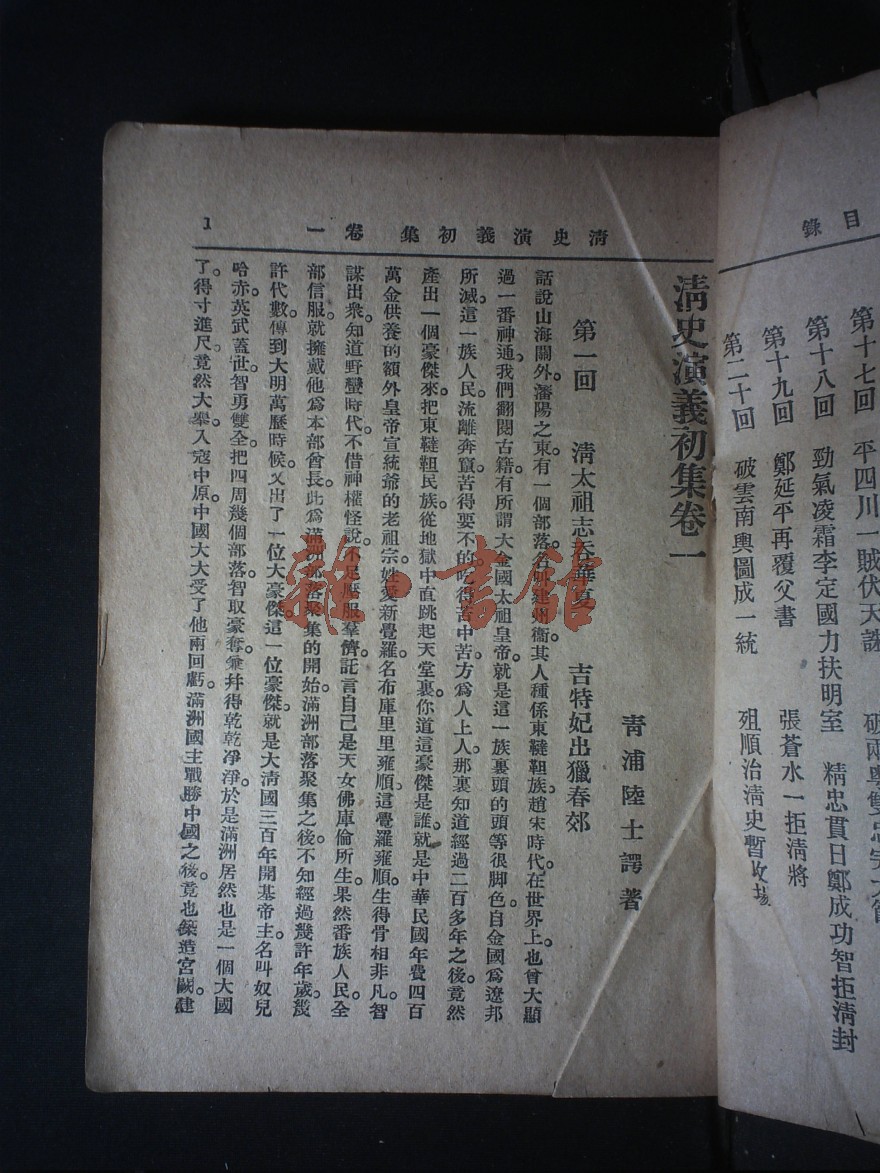 目錄
第十七回 平四川一賊伏天誅
第十八回 勁氣凌霜李定國力扶明室 精忠貫日鄭成功智拒淸封
第十九回 鄭延平再覆父書 張蒼水一拒淸將
第二十回 破雲南輿圖成一統 殂順治淸史暫收場
淸史演義初集 卷一
1
淸史演義初集卷一
靑浦陸士諤著
第一回 淸太祖志吞華夏 吉特妃出獵春郊
話說山海關外。瀋陽之東。有一個部落。名叫建州衞。其人種係東韃靼族。趙宋時代。在世界上也曾大顯
過一番神通。我們翻閱古籍。有所謂大金國太祖皇帝。就是這一族裏頭的頭等很脚色。自金國爲遼邦
所滅。這一族人民。流離奔竄。苦得要不的。吃得苦中苦。方爲人上人。那裏知道經過二百多年之後。竟然
產出一個豪傑來。把東韃靼民族。從地獄中直跳起天堂裏。你道這豪傑是誰。就是中華民國年費四百
萬金供養的額外皇帝宣統爺的老祖宗。姓愛新覺羅。名布庫里里雍順。這覺羅雍順。生得骨相非凡。智
謀出衆。知道野蠻時代。不借神權怪說。不足壓服羣儕。託言自己是天女佛庫倫所生。果然番族人民。全
部信服。就擁戴他爲本部酋長。此爲滿洲部落聚集的開始。滿洲部落聚集之後。不知經過幾許年歲。幾
許代數。傳到大明萬曆時候。又出了一位大豪傑。這一位豪傑。就是大淸國三百年開基帝主。名叫奴兒
哈赤。英武蓋世。智勇雙全。把四周幾個部落。智取豪奪。兼幷得乾乾凈淨。於是滿洲居然也是一個大國
了。得寸進尺。竟然大舉入寇中原。中國大大受了他兩回虧。滿洲國主戰勝中國之後。竟也築造宮闕。建
龍書館